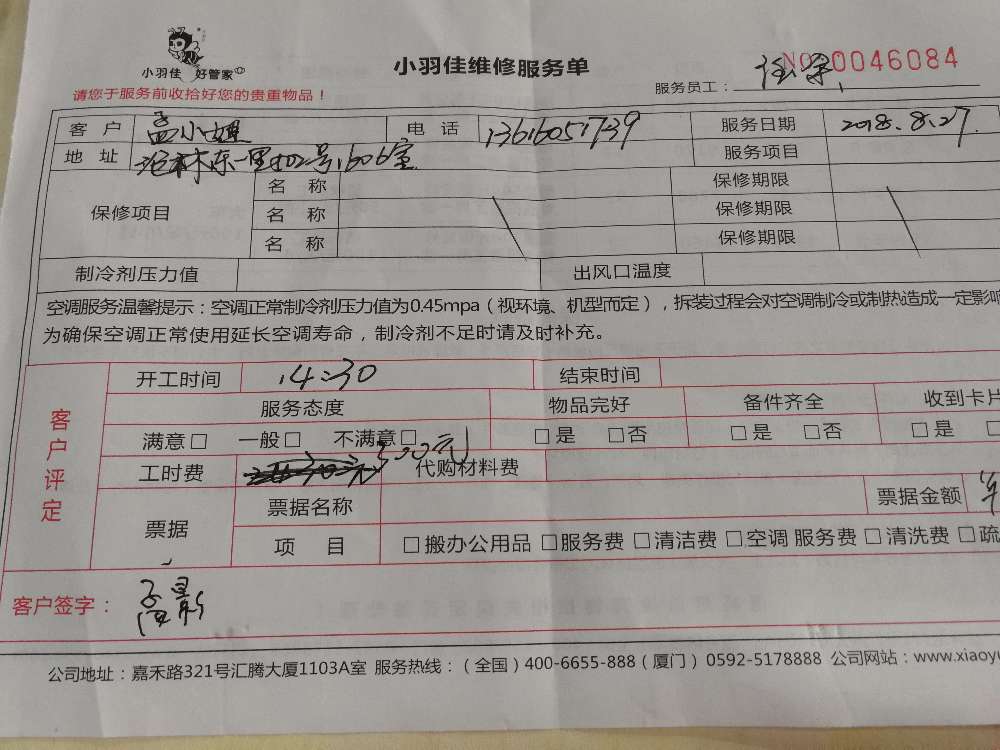 小羽佳 好管家
小羽佳维修服务单
No 0046084
请您于服务前收拾好您的贵重物品！
服务员工：
客户 孟小姐 电话 13616051739 服务日期 2018.8.27.
地址 沧林东一里402号1606室 服务项目
保修项目 名称 保修期限
名称 保修期限
名称 保修期限
制冷剂压力值 出风口温度
空调服务温馨提示：空调正常制冷剂压力值为0.45mpa（视环境、机型而定），拆装过程会对空调制冷或制热造成一定影响
为确保空调正常使用延长空调寿命，制冷剂不足时请及时补充。
客户评定
开工时间 14:30 结束时间
服务态度 物品完好 备件齐全 收到卡片
满意□ 一般□ 不满意□ □是 □否 □是 □否 □是 □
工时费 300元 代购材料费
票据 票据名称 票据金额
项目 □搬办公用品 □服务费 □清洁费 □空调服务费 □清洗费 □疏
客户签字：孟影
公司地址：嘉禾路321号汇腾大厦1103A室 服务热线：（全国）400-6655-888（厦门）0592-5178888 公司网站：www.xiaoyu